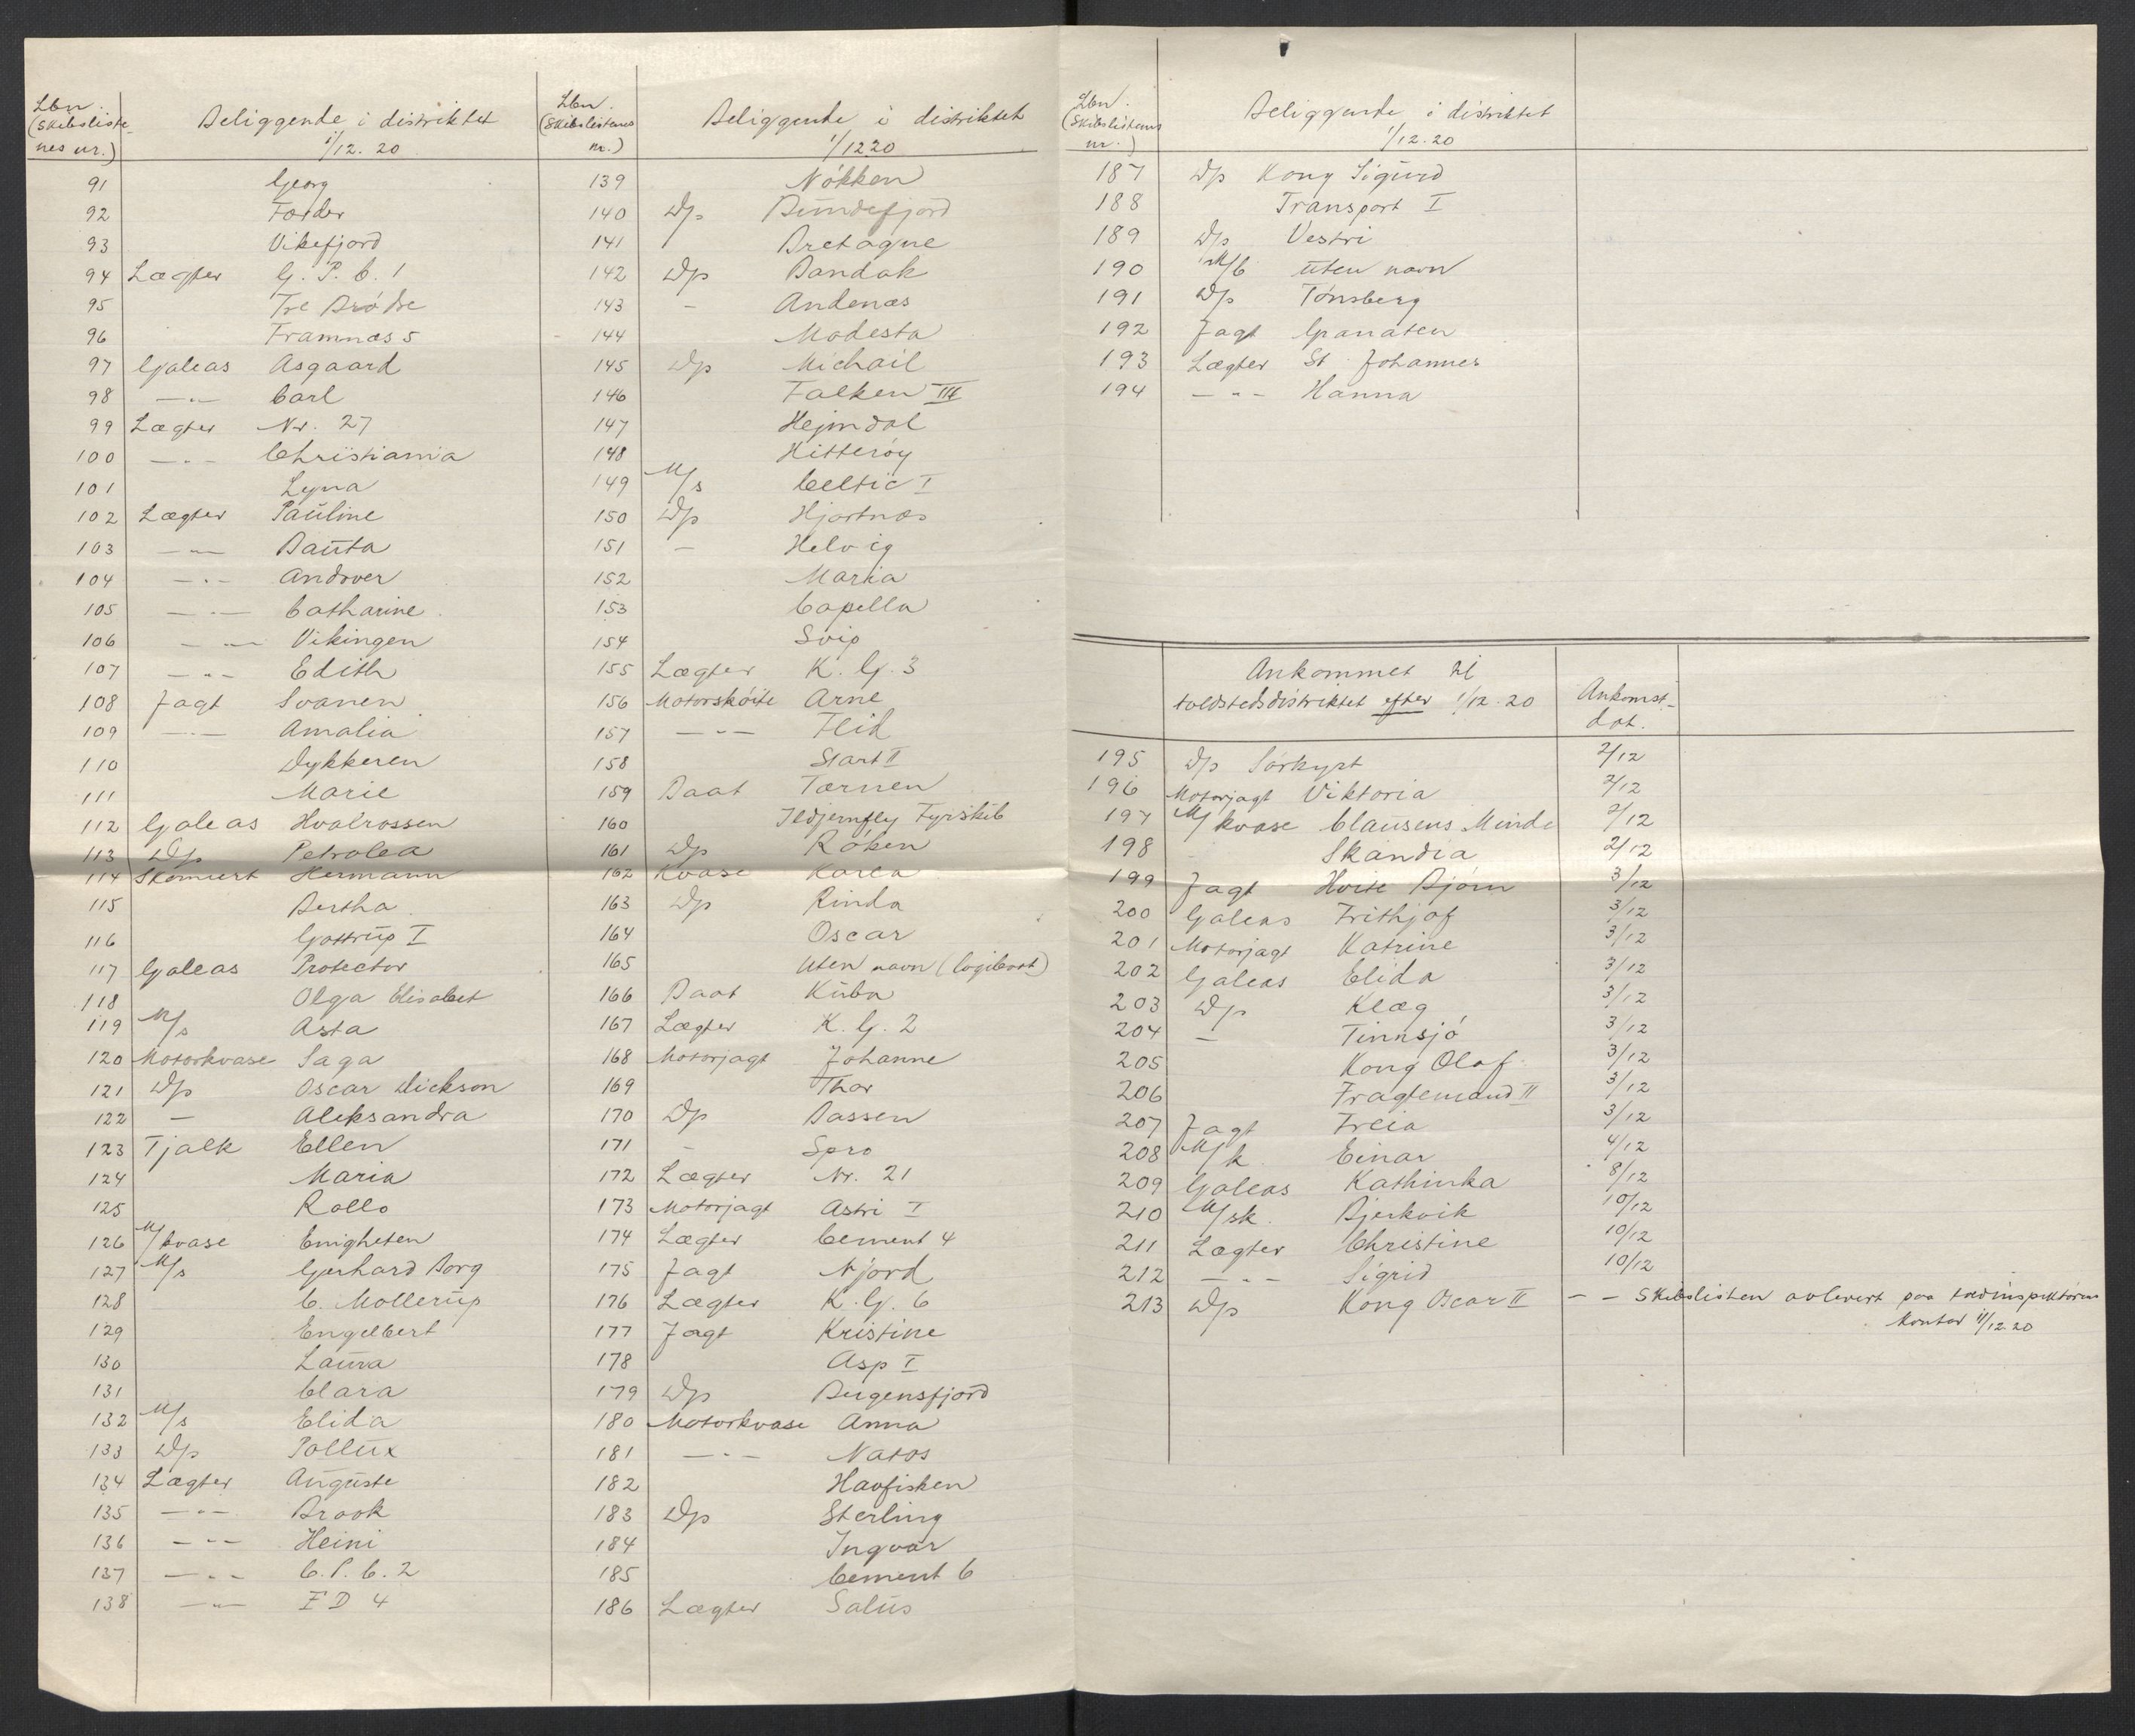 Lbn.
(Skibsliste-
nes nr.)
Beliggende i distriktet
1/12.20
91 Georg
92 Færder
93 Vikefjord
94 Lægter G. P. C. 1
95 Tre Brødre
96 Framnæs 5
97 Galeas Asgaard
98 —„— Carl
99 Lægter Nr. 27
100 —„— Christiania
101 Lyna
102 Lægter Pauline
103 —„— Bauta
104 —„— Andover
105 —„— Catharine
106 —„— Vikingen
107 —„— Edith
108 Jagt Svanen
109 —„— Amalia
110 Dykkeren
111 Marie
112 Galeas Hvalrossen
113 Dp Petrolea
114 Skonnert Hermann
115 Bertha
116 Gottrup I
117 Galeas Protector
118 Olga Elisabet
119 M/s Asta
120 Motorkvase Saga
121 Dp Oscar Dickson
122 — Aleksandra
123 Tjalk Ellen
124 Maria
125 Rollo
126 M/kvase Enigheten
127 M/s Gerhard Borg
128 C. Mollerup
129 Engelbert
130 Laura
131 Clara
132 M/s Elida
133 Dp Pollux
134 Lægter Auguste
135 —„— Brook
136 —„— Heini
137 —„— C. P. C. 2
138 —„— F D 4
Lbn.
(Skibslistenes
nr.)
Beliggende i distriktet
1/12 20
139 Nøkken
140 Dp Bundefjord
141 Bretagne
142 Dp Bandak
143 — Andenæs
144 Modesta
145 Dp Michail
146 Falken III
147 Hejmdal
148 Hitterøy
149 M/s Celtic I
150 Dp Hjortnæs
151 — Helvig
152 Maria
153 Capella
154 Svip
155 Lægter K. G. 3
156 Motorskøite Arne
157 —„— Flid
158 Start II
159 Baat Tærnen
160 Ildjernfly Fyrskib
161 Dp Røken
162 Kvase Karea
163 Dp Rinda
164 Oscar
165 Uten navn (logibaat)
166 Baat Kuba
167 Lægter K. G. 2
168 Motorjagt Johanne
169 Thor
170 Dp Bassen
171 — Spro
172 Lægter Nr. 21
173 Motorjagt Astri I
174 Lægter Cement 4
175 Jagt Njord
176 Lægter K. G. 6
177 Jagt Kristine
178 Asp I
179 Dp Bergensfjord
180 Motorkvase Anna
181 —„— Natos
182 Havfisken
183 Dp Sterling
184 Ingvar
185 Cement 6
186 Lægter Salus
Lbn.
(Skibslistenes
nr.)
Beliggende i distriktet
1/12.20
187 Dp Kong Sigurd
188 Transport I
189 Dp Vestri
190 M/b uten navn
191 Dp Tønsberg
192 Jagt Granaten
193 Lægter St. Johannes
194 —„— Hanna
Ankommet til
toldstedsdistriktet efter 1/12.20
Ankomst-
dat.
195 Dp Sørkyst 2/12
196 Motorjagt Viktoria 2/12
197 M/kvase Clausens Minde 2/12
198 Skandia 2/12
199 Jagt Hvite Bjørn 3/12
200 Galeas Frithjof 3/12
201 Motorjagt Katrine 3/12
202 Galeas Elida 3/12
203 Dp Klæg 3/12
204 — Tinnsjø 3/12
205 Kong Olaf 3/12
206 Fragtemand II 3/12
207 Jagt Freia 3/12
208 M/k Einar 4/12
209 Galeas Kathinka 8/12
210 M/sk. Bjerkvik 10/12
211 Lægter Christine 10/12
212 —„— Sigrid 10/12
213 Dp Kong Oscar II — — Skibslisten avlevert paa toldinspektørens
kontor 11/12.20